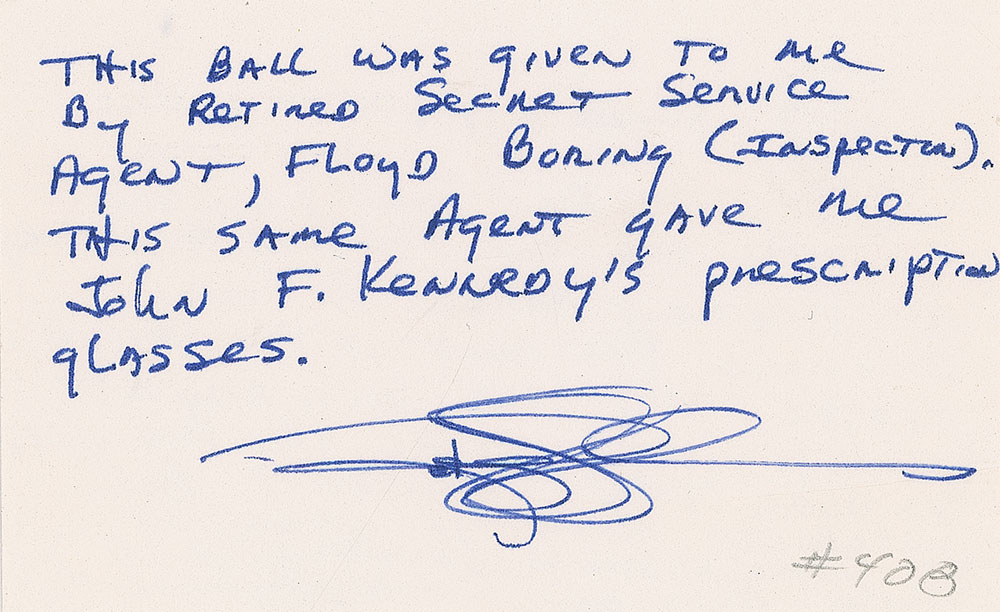 THIS BALL WAS gIVEN TO me
By RETIRED SecReT SeRVICe
AgeNT, FLOyD BORINg (INSpecTOR).
THIS SAme AgeNT gAVe me
JOhN F. KeNNeDy'S pReSCRIpTION
gLASSeS.
#408